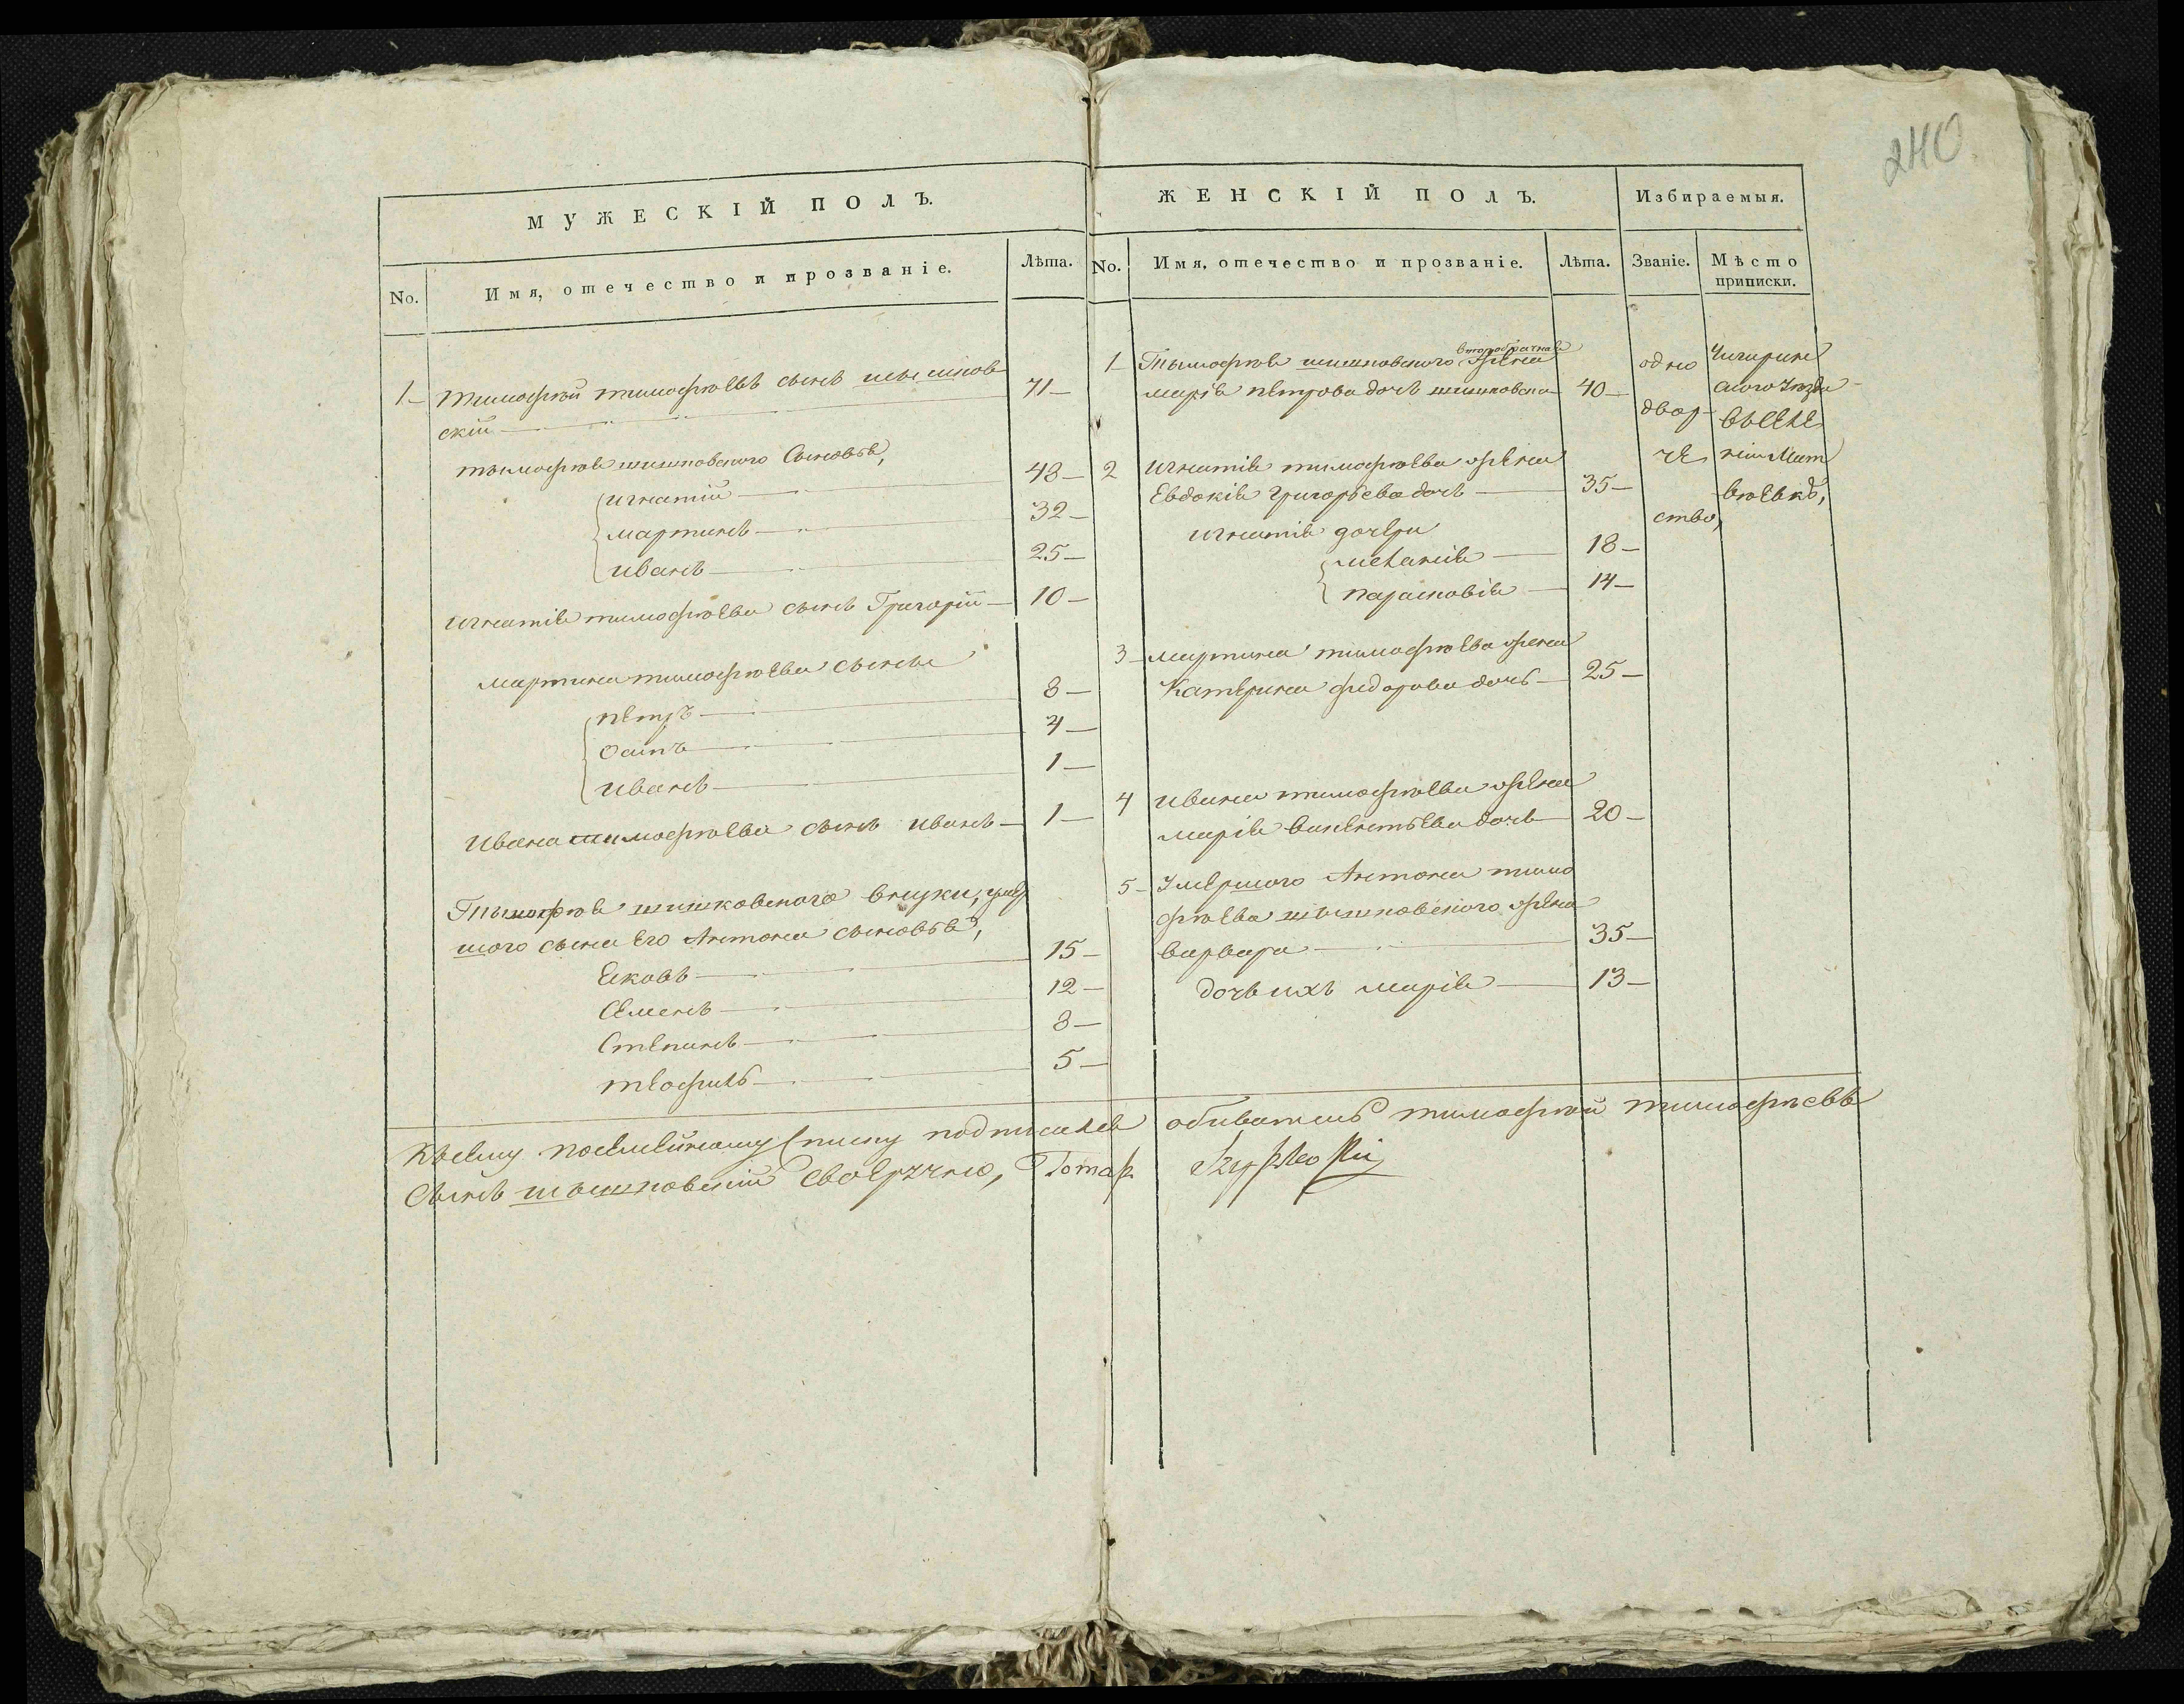 240
МУЖЕСКІЙ ПОЛЪ.
No. Имя, отечество и прозваніе. Лѣта.
1 Тимофѣй тимофѣевъ сынъ шышков 71
скій
тымофѣя шишковского Сыновья,
игнатий 48
мартинъ 32
иванъ 25
игнатія тимофѣева сынъ Григорій 10
мартина тимофѣева сыны
петръ 8
осипъ 4
иванъ 1
ивана тимофѣева сынъ иванъ 1
Тымофѣя шишковского внуки, умер
шого сына Его Антона сыновья,
Яковъ 15
Семенъ 12
Степанъ 8
теофилъ 5
ЖЕНСКІЙ ПОЛЪ. Избираемыя.
No. Имя, отечество и прозваніе. Лѣта. Званіе. Мѣсто
приписки.
второбрачная
1 Тымофѣя шишковского жена
марія петрова дочь шишковска 40
2 игнатія тимофѣева жена
Евдокія григорьева дочь 35
игнатія дочери
меланія 18
парасковія 14
3 мартина тимофѣева жена
Катерина федорова дочь 25
4 ивана тимофѣева жена
марія викентьева дочь 20
5 Умершого Антона тимо
фѣева шышковского жена
варвара 35
дочь ихъ марія 13
одно
двор
че
ство,
Чигирин
ского уѣзда
въселе
ніи Мат
вѣевкѣ,
Късему посемейному Списку подписался обиватель тимофѣй тимофѣевъ
Сынъ шышковский своеручно, Tomasz Szyszkoski